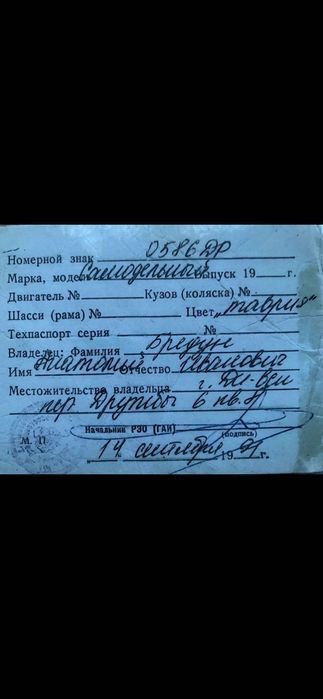 Номерной знак 0586 ДР
Марка, модель Самодельный Выпуск 19 г.
Двигатель № Кузов (коляска) №
Шасси (рама) № Цвет „таврия“
Техпаспорт серия №
Владелец: Фамилия Бредун
Имя Анатолий Отчество Иванович
Местожительство владельца г.
пер. Дружбы 6 кв. 8
Начальник РЭО (ГАИ)
М. П. (подпись)
„14 сентября 1991 г.